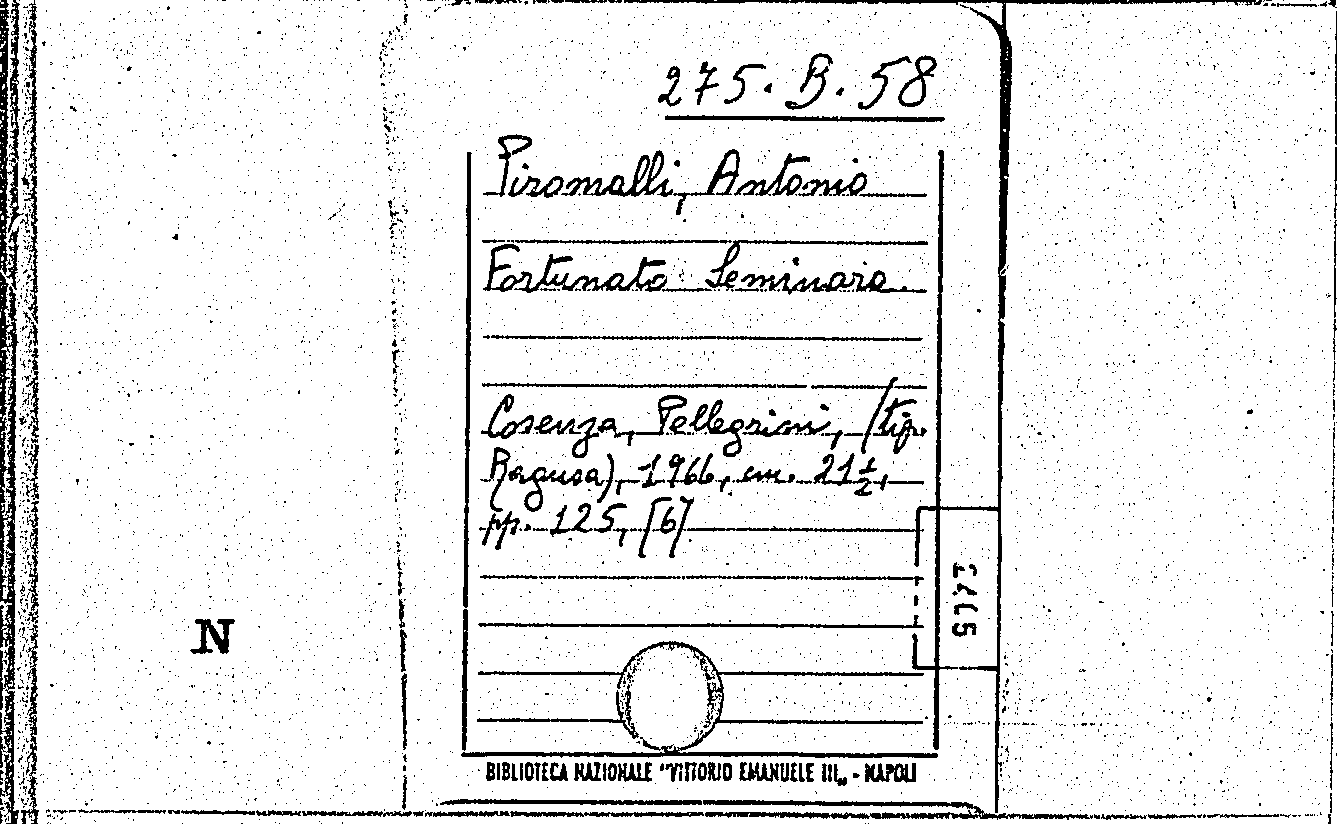 275. B. 58
Piromalli, Antonio
Fortunato Seminara.
Cosenza, Pellegrini, /tip.
Ragusa), 1966, cm. 21 1/2,
pp. 125, [6]
N
BIBLIOTECA NAZIONALE "VITTORIO EMANUELE III„ - NAPOLI